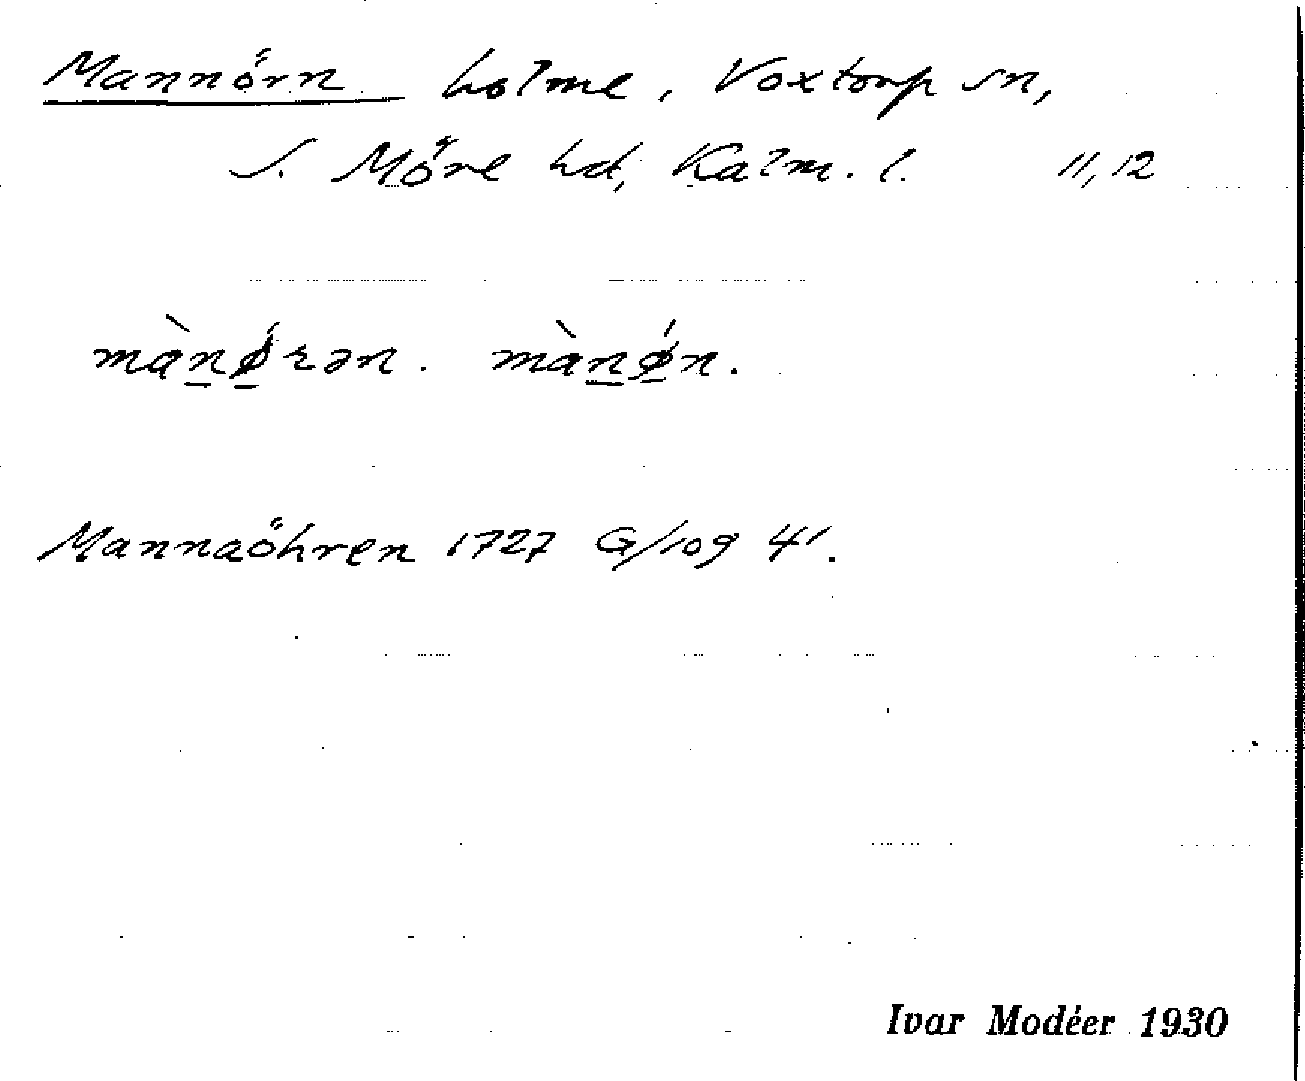 Mannörn holme, Voxtorp sn,
S. Möre hd, Kalm. l. 11,12
màn̲ǿ̲rən. màn̲ǿ̲n.
Mannaöhren 1727 G/109 4'.
Ivar Modéer 1930